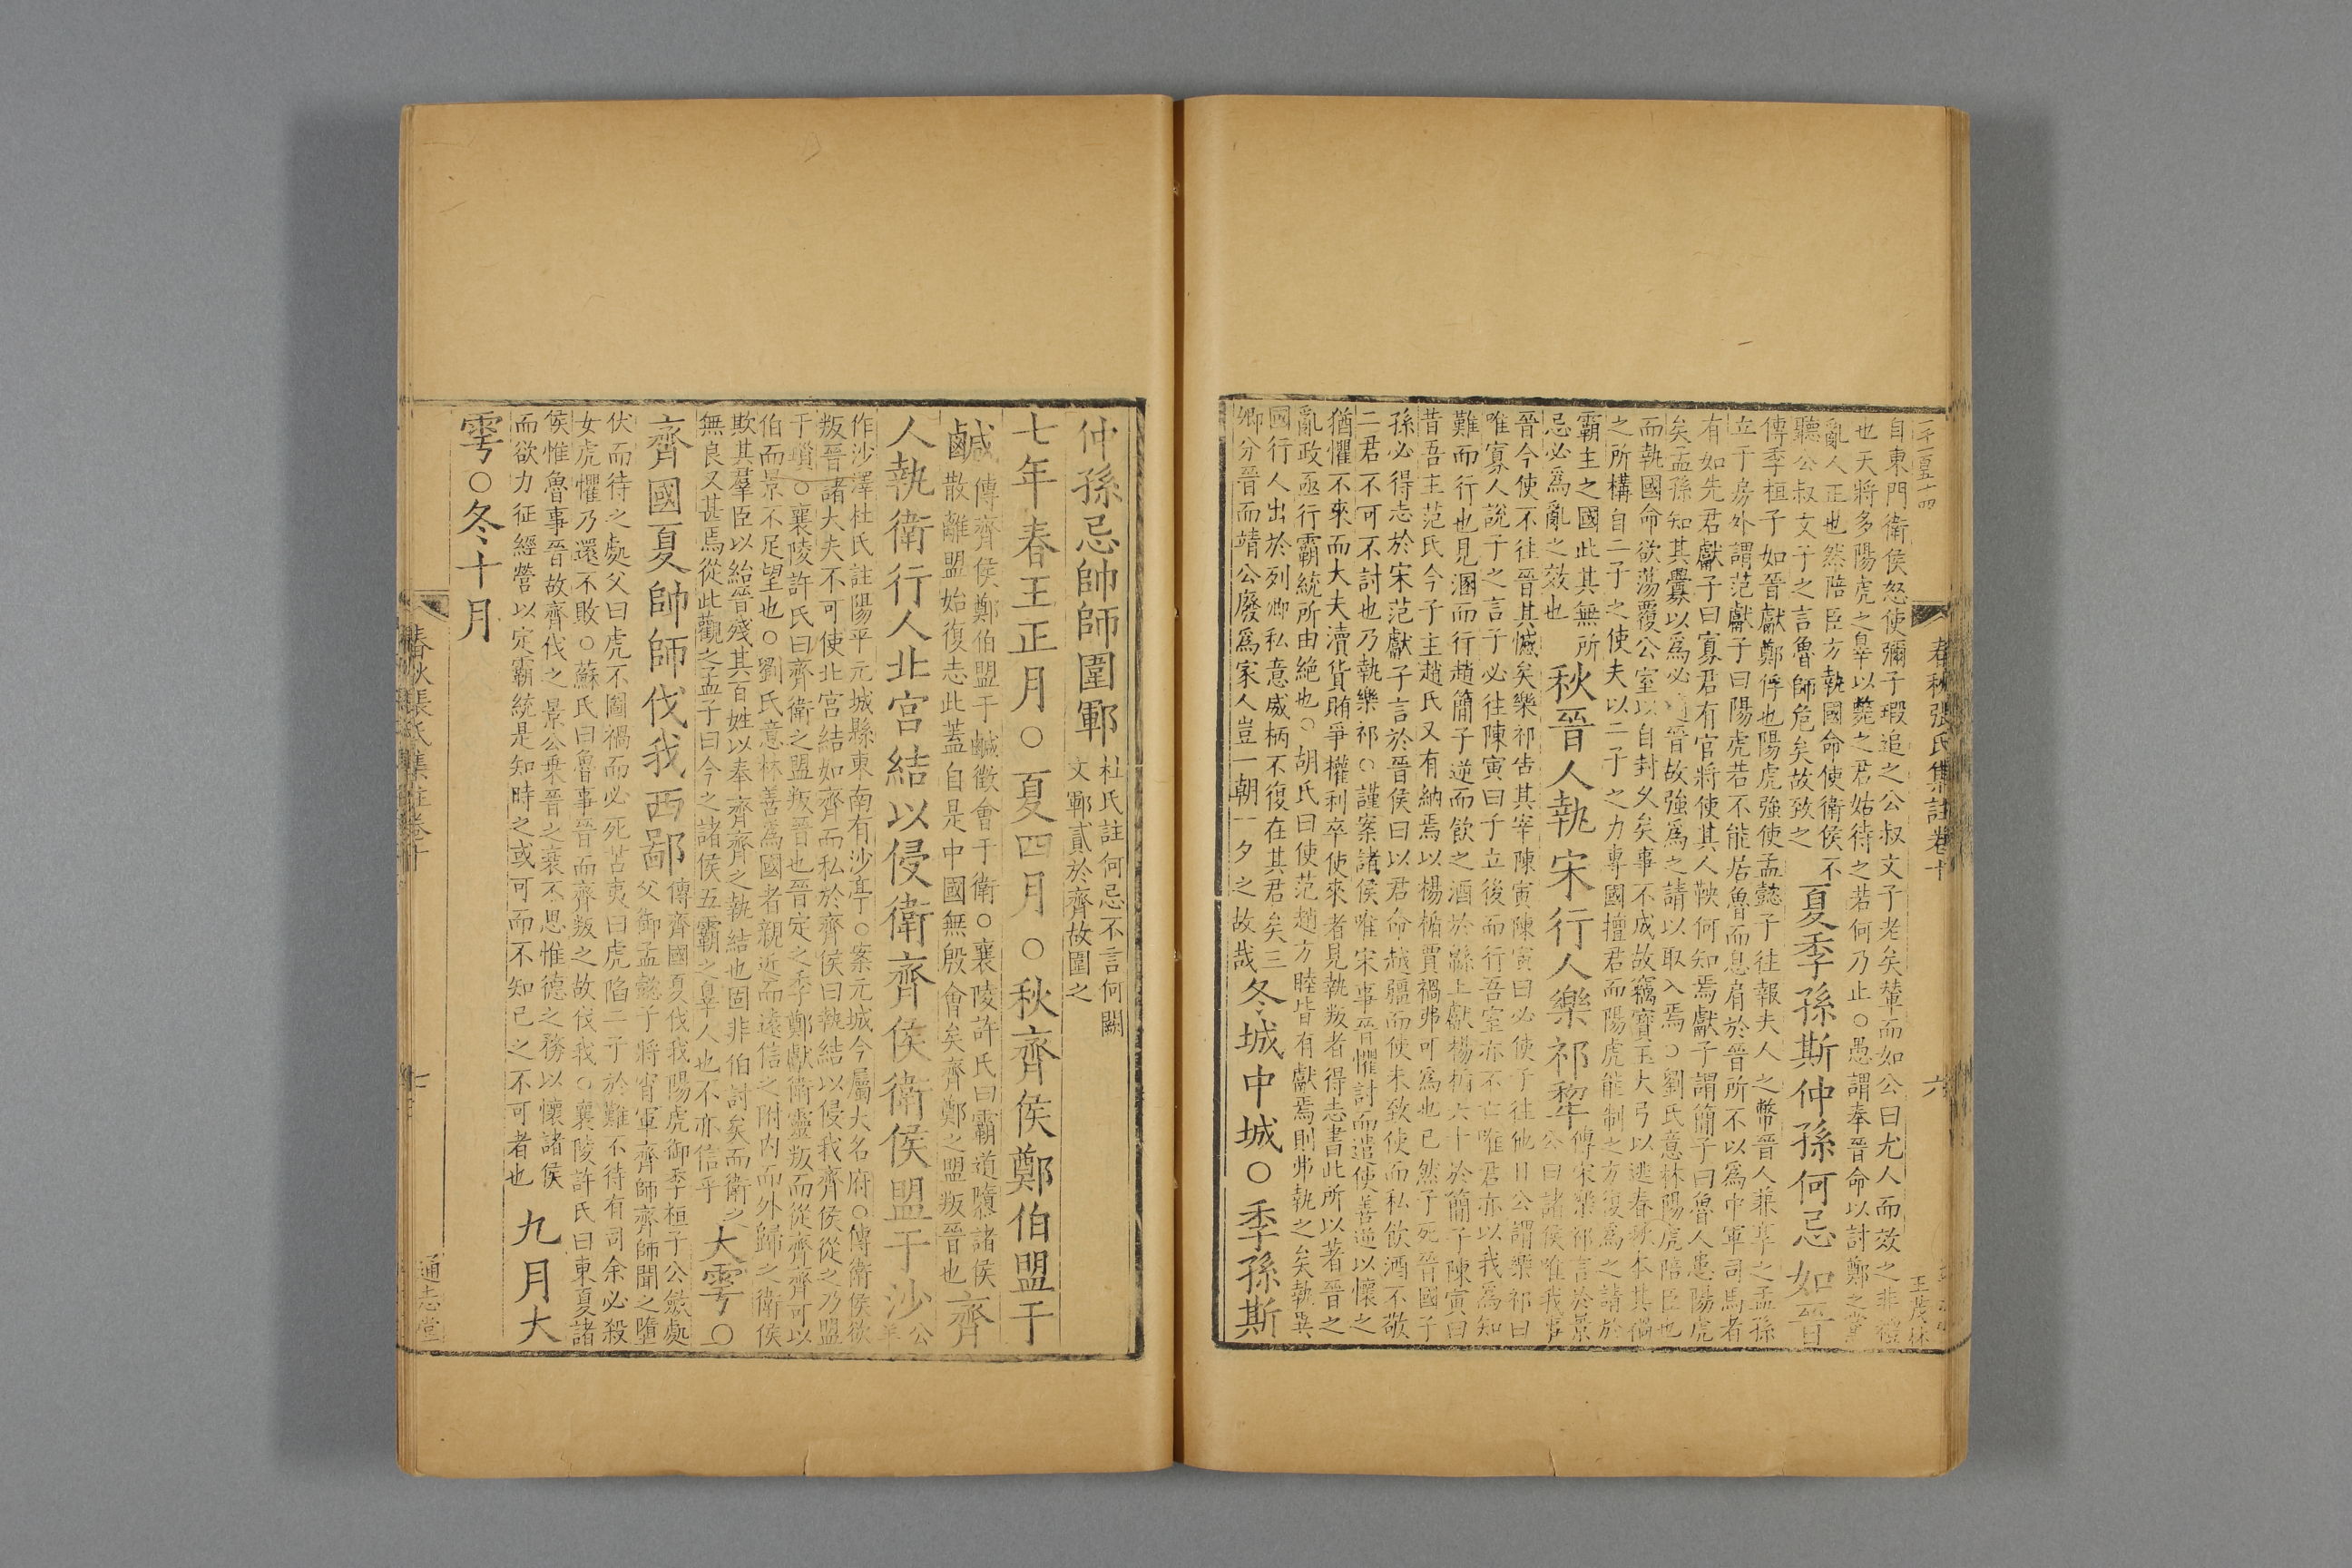 春秋張氏集註卷十
六
王茂林
自東門衛侯怒使彌子瑕追之公叔文子老矣輦而如公曰尤人而效之非禮
也天將多陽虎之辠以斃之君姑待之若何乃止○愚謂奉晉命以討鄭之黨
亂人正也然陪臣方執國命使衛侯不
聽公叔文子之言魯師危矣故致之
夏季孫斯仲孫何忌如晉
傳季桓子如晉獻鄭俘也陽虎強使孟懿子往報夫人之幣晉人兼享之孟孫
立于房外謂范獻子曰陽虎若不能居魯而息肩於晉所不以爲中軍司馬者
有如先君獻子曰寡君有官將使其人鞅何知焉獻子謂簡子曰魯人患陽虎
矣孟孫知其釁以爲必適晉故強爲之請以取入焉○劉氏意林陽虎陪臣也
而執國命欲蕩覆公室以自封久矣事不成故竊寶玉大弓以逃春秋本其禍
之所構自二子之使夫以二子之力專國擅君而陽虎能制之方復爲之請於
霸主之國此其無所
忌必爲亂之效也
秋晉人執宋行人樂祁犂
傳宋樂祁言於景
公曰諸侯唯我事
晉今使不往晉其憾矣樂祁告其宰陳寅陳寅曰必使子往他日公謂樂祁曰
唯寡人說子之言子必往陳寅曰子立後而行吾室亦不亡唯君亦以我爲知
難而行也見溷而行趙簡子逆而飲之酒於緜上獻楊楯六十於簡子陳寅曰
昔吾主范氏今子主趙氏又有納焉以楊楯賈禍弗可爲也已然子死晉國子
孫必得志於宋范獻子言於晉侯曰以君命越疆而使未致使而私飲酒不敬
二君不可不討也乃執樂祁○謹案諸侯唯宋事晉懼討而遣使善逆以懷之
猶懼不來而大夫瀆貨賄爭權利卒使來者見執叛者得志書此所以著晉之
亂政亟行霸統所由絕也○胡氏曰使范趙方睦皆有獻焉則弗執之矣執異
國行人出於列卿私意威柄不復在其君矣三
卿分晉而靖公廢爲家人豈一朝一夕之故哉
冬城中城○季孫斯
仲孫忌帥師圍鄆
杜氏註何忌不言何闕
文鄆貳於齊故圍之
七年春王正月○夏四月○秋齊侯鄭伯盟于
鹹
傳齊侯鄭伯盟于鹹徵會于衛○襄陵許氏曰霸道隳諸侯
散離盟始復志此蓋自是中國無殷會矣齊鄭之盟叛晉也
齊
人執衛行人北宮結以侵衛齊侯衛侯盟于沙
公
羊
作沙澤杜氏註陽平元城縣東南有沙亭○案元城今屬大名府○傳衛侯欲
叛晉諸大夫不可使北宮結如齊而私於齊侯曰執結以侵我齊侯從之乃盟
于瑣○襄陵許氏曰齊衛之盟叛晉也晉定之季鄭獻衛靈叛而從齊齊可以
伯而景不足望也○劉氏意林善爲國者親近而遠信之附內而外歸之衛侯
欺其羣臣以紿晉殘其百姓以奉齊齊之執結也固非伯討矣而衛之
無良又甚焉從此觀之孟子曰今之諸侯五霸之辠人也不亦信乎
大雩○
齊國夏帥師伐我西鄙
傳齊國夏伐我陽虎御季桓子公斂處
父御孟懿子將宵軍齊師齊師聞之墮
伏而待之處父曰虎不圖禍而必死苫夷曰虎陷二子於難不待有司余必殺
女虎懼乃還不敗○蘇氏曰魯事晉而齊叛之故伐我○襄陵許氏曰東夏諸
侯惟魯事晉故齊伐之景公乘晉之衰不思惟德之務以懷諸侯
而欲力征經營以定霸統是知時之或可而不知己之不可者也
九月大
雩○冬十月
春秋張氏集註卷十
七
通志堂